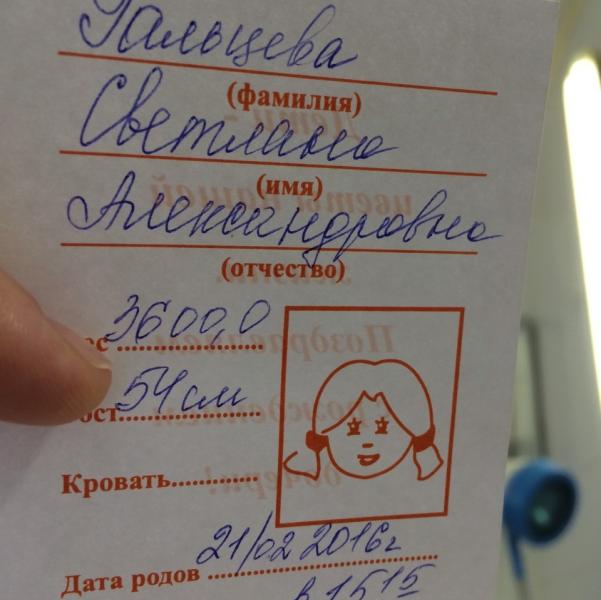 Гальцева
(фамилия)
Светлана
(имя)
Александровна
(отчество)
ес 3600,0
ост 54 см
Кровать
Дата родов 21/02 2016г
в 15 15